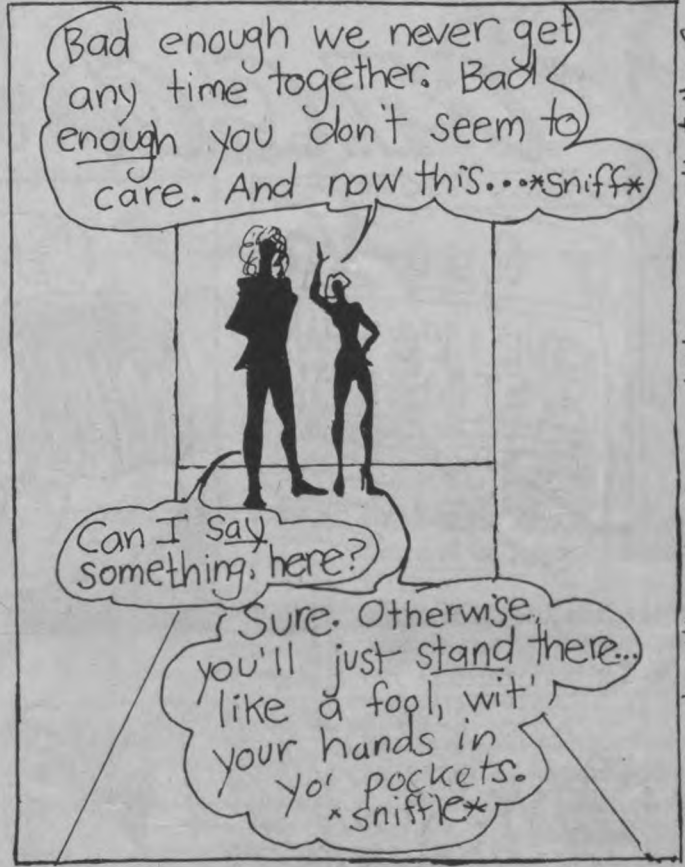 Bad enough we never get
any time together. Bad
enough you don't seem to
care. And now this...*sniff*
Can I say
something, here?
Sure. Otherwise,
you'll just stand there...
like a fool, wit'
your hands in
yo' pockets.
*sniffle*